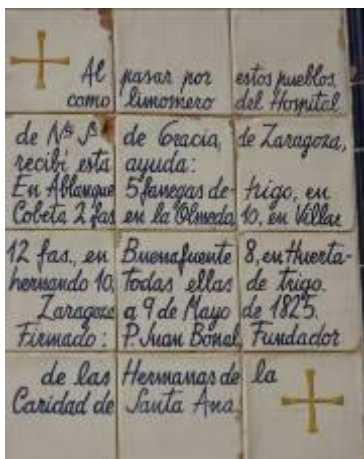 Al pasar por estos pueblos
como limosnero del Hospital
de Nª Sª de Gracia, de Zaragoza,
recibí esta ayuda:
En Ablanque 5 fanegas de trigo, en
Cobeta 2 fas en la Olmeda 10, en Villar
12 fas., en Buenafuente 8, en Huerta-
hernando 10, todas ellas de trigo.
Zaragoza a 9 de Mayo de 1825.
Firmado: P. Juan Bonal, Fundador
de las Hermanas de la
Caridad de Santa Ana